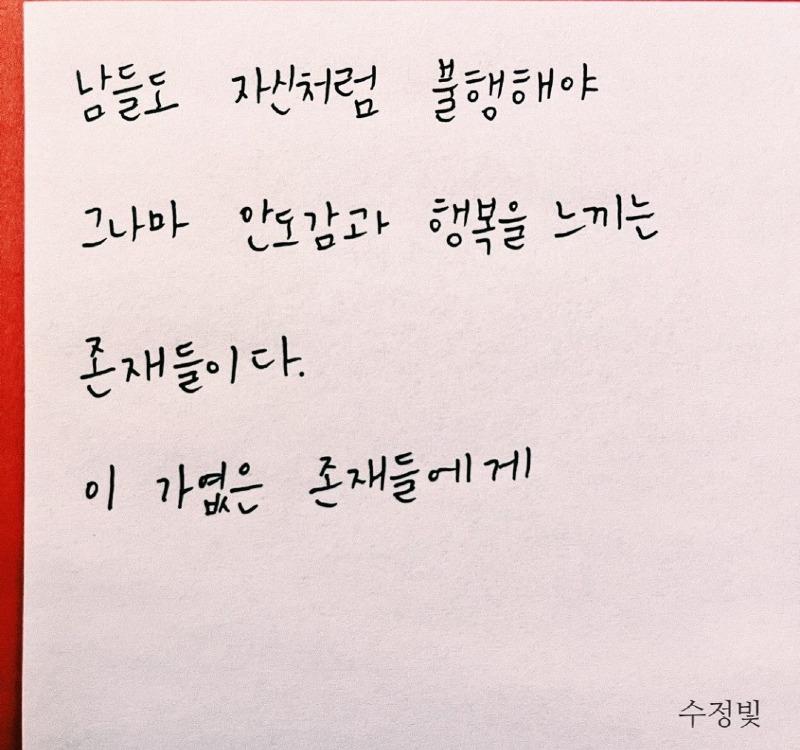 남들도 자신처럼 불행해야
그나마 안도감과 행복을 느끼는
존재들이다.
이 가엾은 존재들에게
수정빛